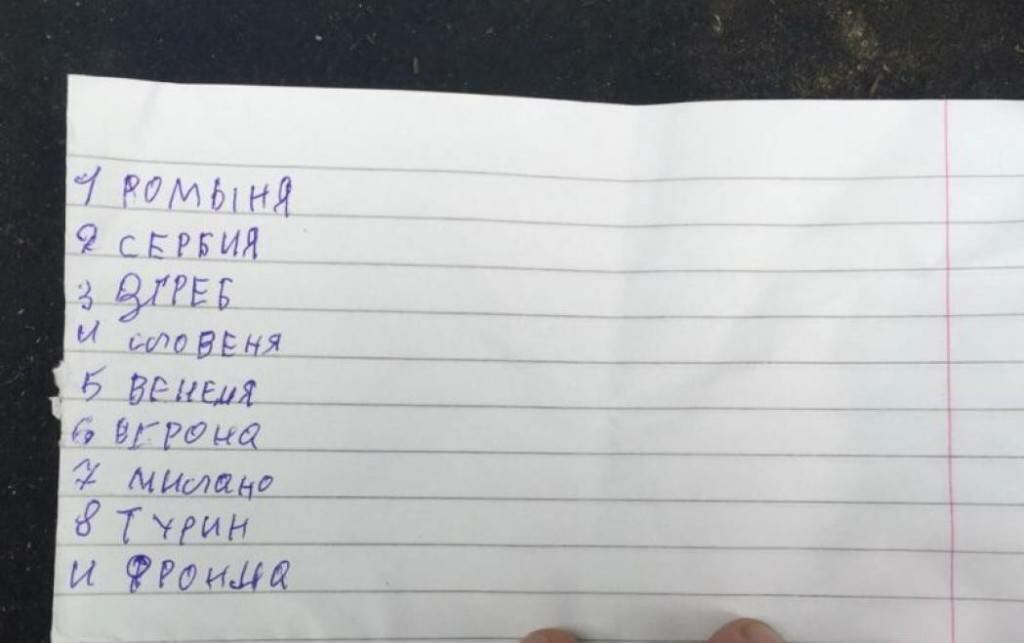 1 РОМЫНЯ
2 СЕРБИЯ
3 ЗГРЕБ
4 словЕНЯ
5 ВЕНЕЦЯ
6 ВЕРОНА
7 милано
8 ТУРИН
И ФРОНЦА